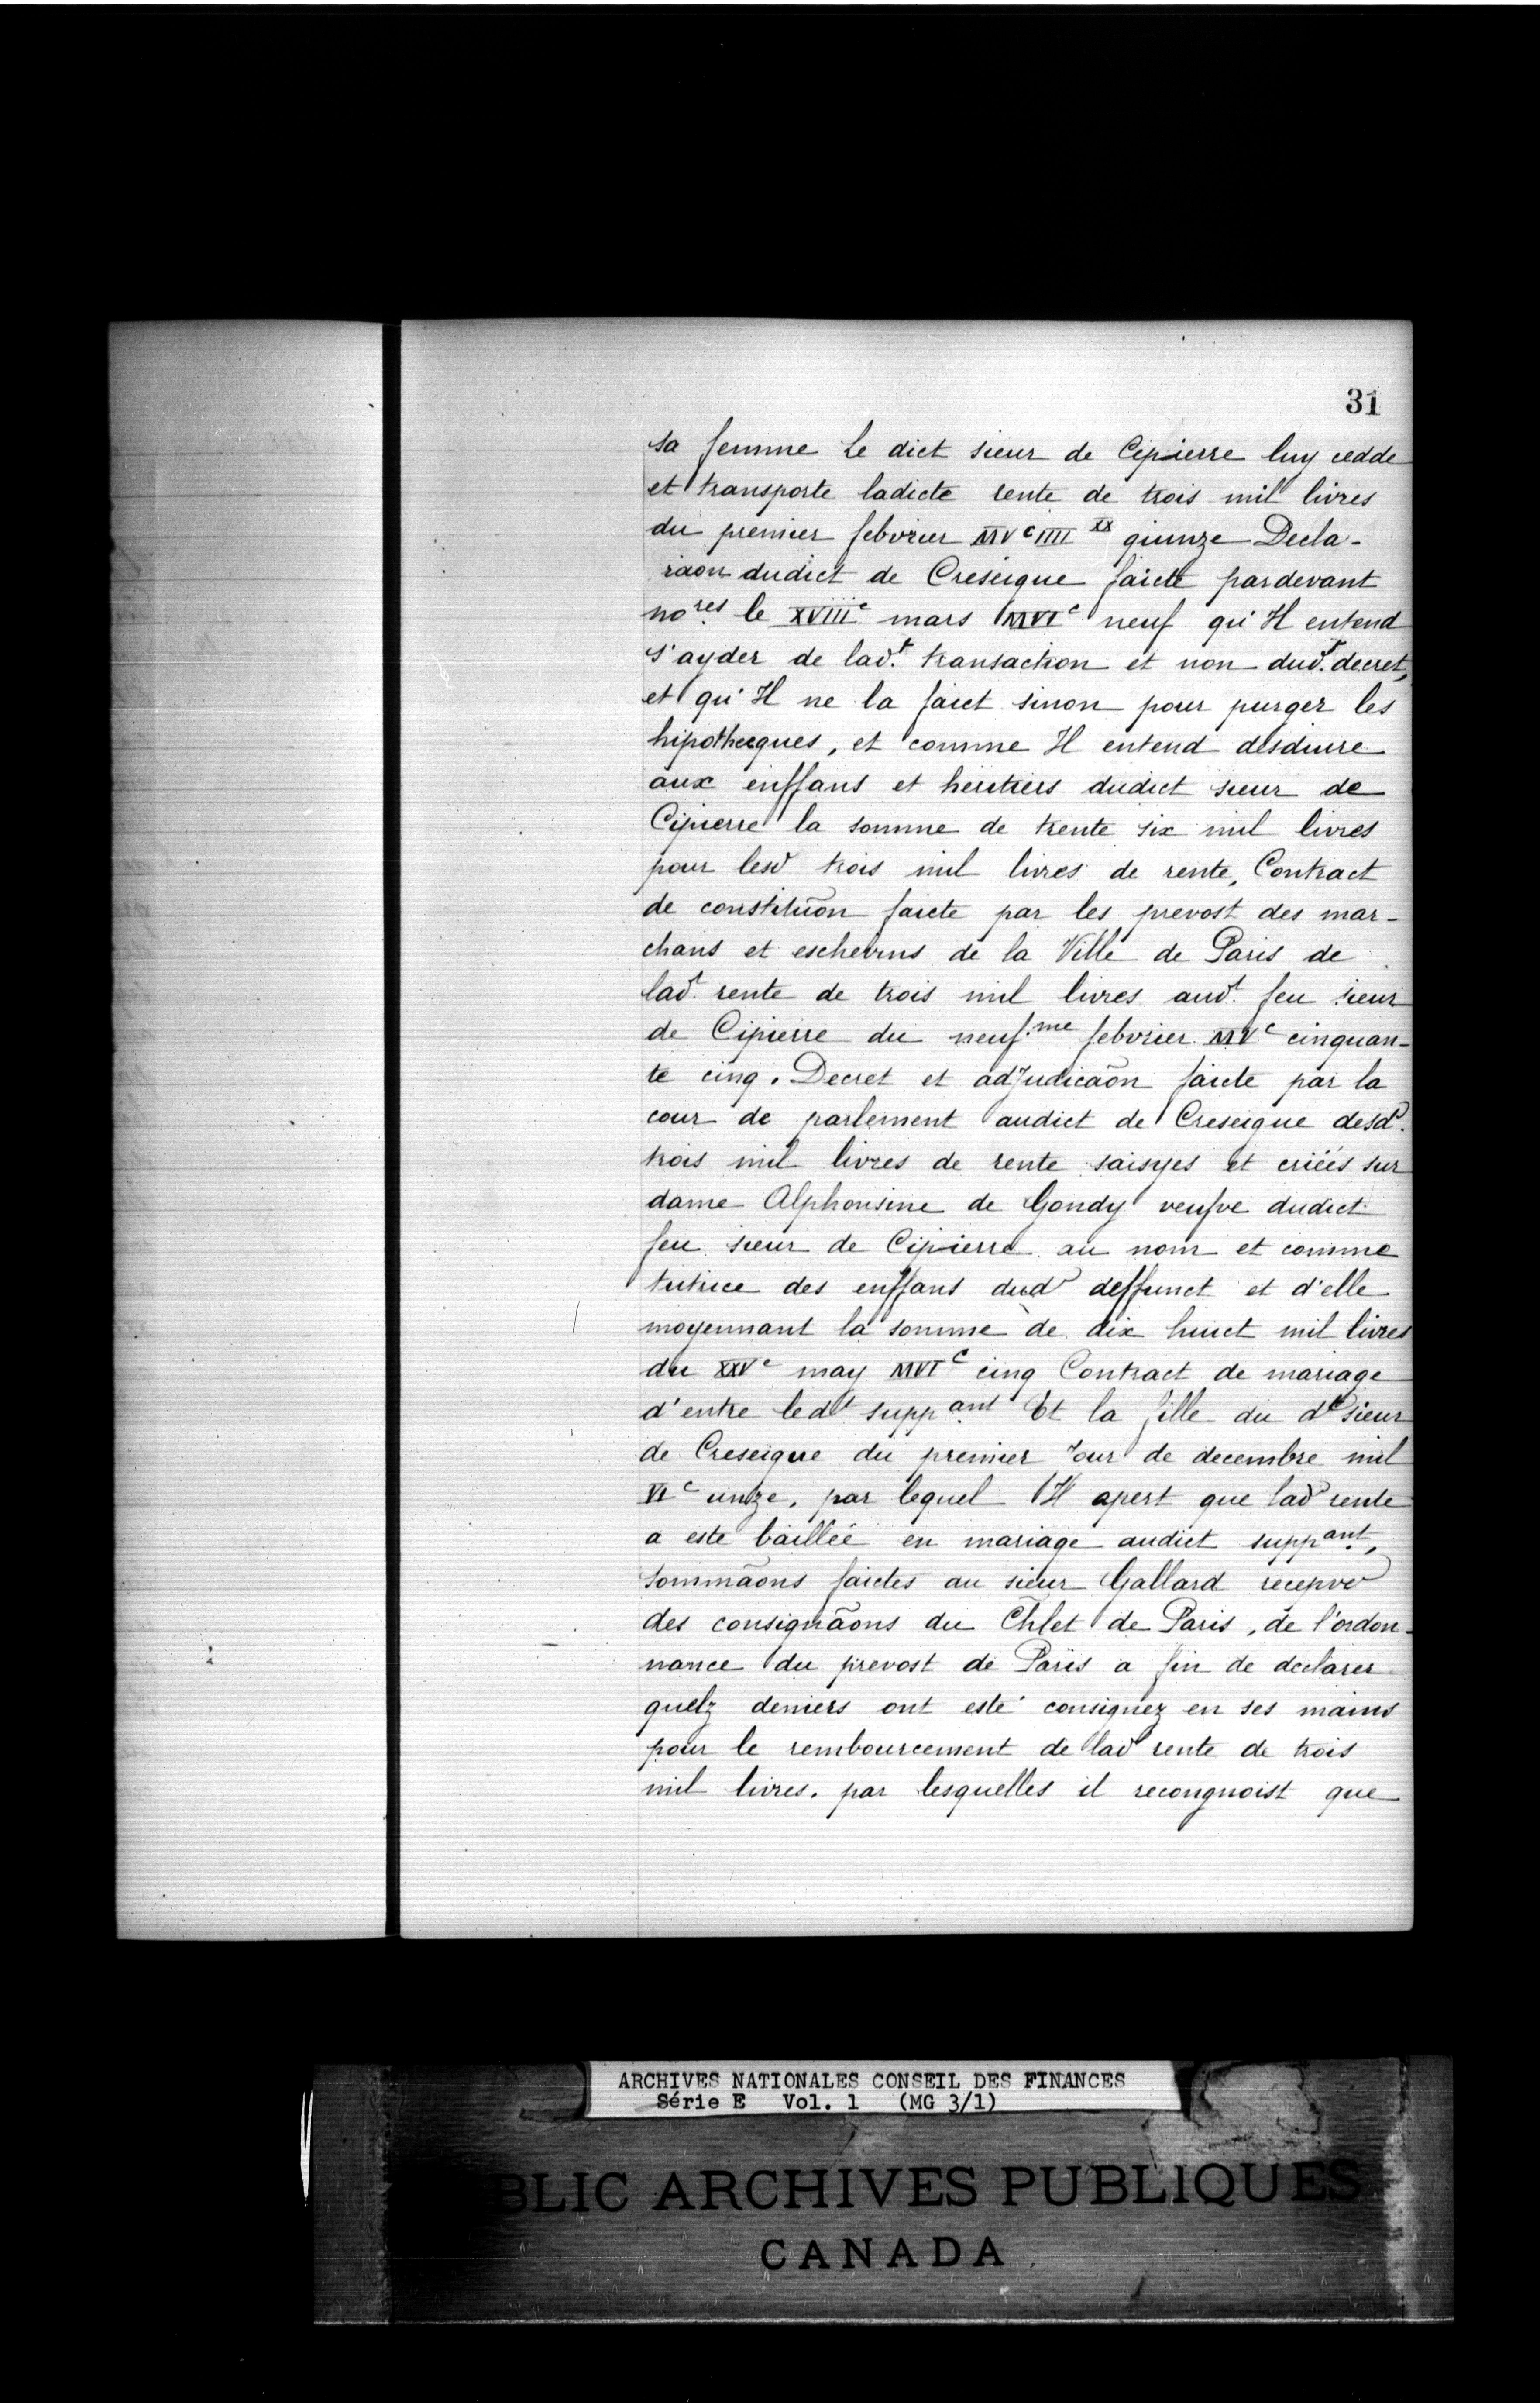 31
sa femme Le dict sieur de Cipierre luy cedde
et transporte ladicte rente de trois mil livres
du premier febvrier MVᶜIIIIˣˣ quinze Decla-
raon dudict de Creseigue faicte pardevant
noʳᵉˢ le XVIIIᵉ mars MVIᶜ neuf qu'Il entend
s'ayder de ladᵗ. transaction et non dudᵗ. decret,
et qu'Il ne la faict sinon pour purger les
hipothecques, et comme Il entend desduire
aux enffans et heritiers dudict sieur de
Cipierre la somme de trente six mil livres
pour lesd trois mil livres de rente, Contract
de constituõn faicte par les prevost des mar-
chans et eschevins de la Ville de Paris de
ladᵗ. rente de trois mil livres audᵗ. feu sieur
de Cipierre du neufᵐᵉ febvrier MVᶜ cinquan-
te cinq. Decret et adJudicaõn faicte par la
cour de parlement audict de Creseigue desd.
trois mil livres de rente saisyes et criéés sur
dame Alphonsine de Gondy veufve dudict
feu sieur de Cipierre au nom et comme
tutrice des enffans dud deffunct et d'elle
moyennant la somme de dix huict mil livres
du XXVᵉ may MVIᶜ cinq Contract de mariage
d'entre ledᵗ suppᵃⁿᵗ Et la fille du dᵗ sieur
de Creseigue du premier Jour de decembre mil
VIᶜ unze, par lequel Il apert que lad rente
a este baillée en mariage audict suppᵃⁿᵗ,
sommãons faictes au sieur Gallard recepvr
des consignãons du Chlet de Paris, de l'ordon-
nance du prevost de Paris a fin de declarer
quelz deniers ont esté consignez en ses mains
pour le remboursement de lad rente de trois
mil livres. par lesquelles il recongnoist que
ARCHIVES NATIONALES CONSEIL DES FINANCES
Série E Vol. 1 (MG 3/1)
BLIC ARCHIVES PUBLIQUES
CANADA